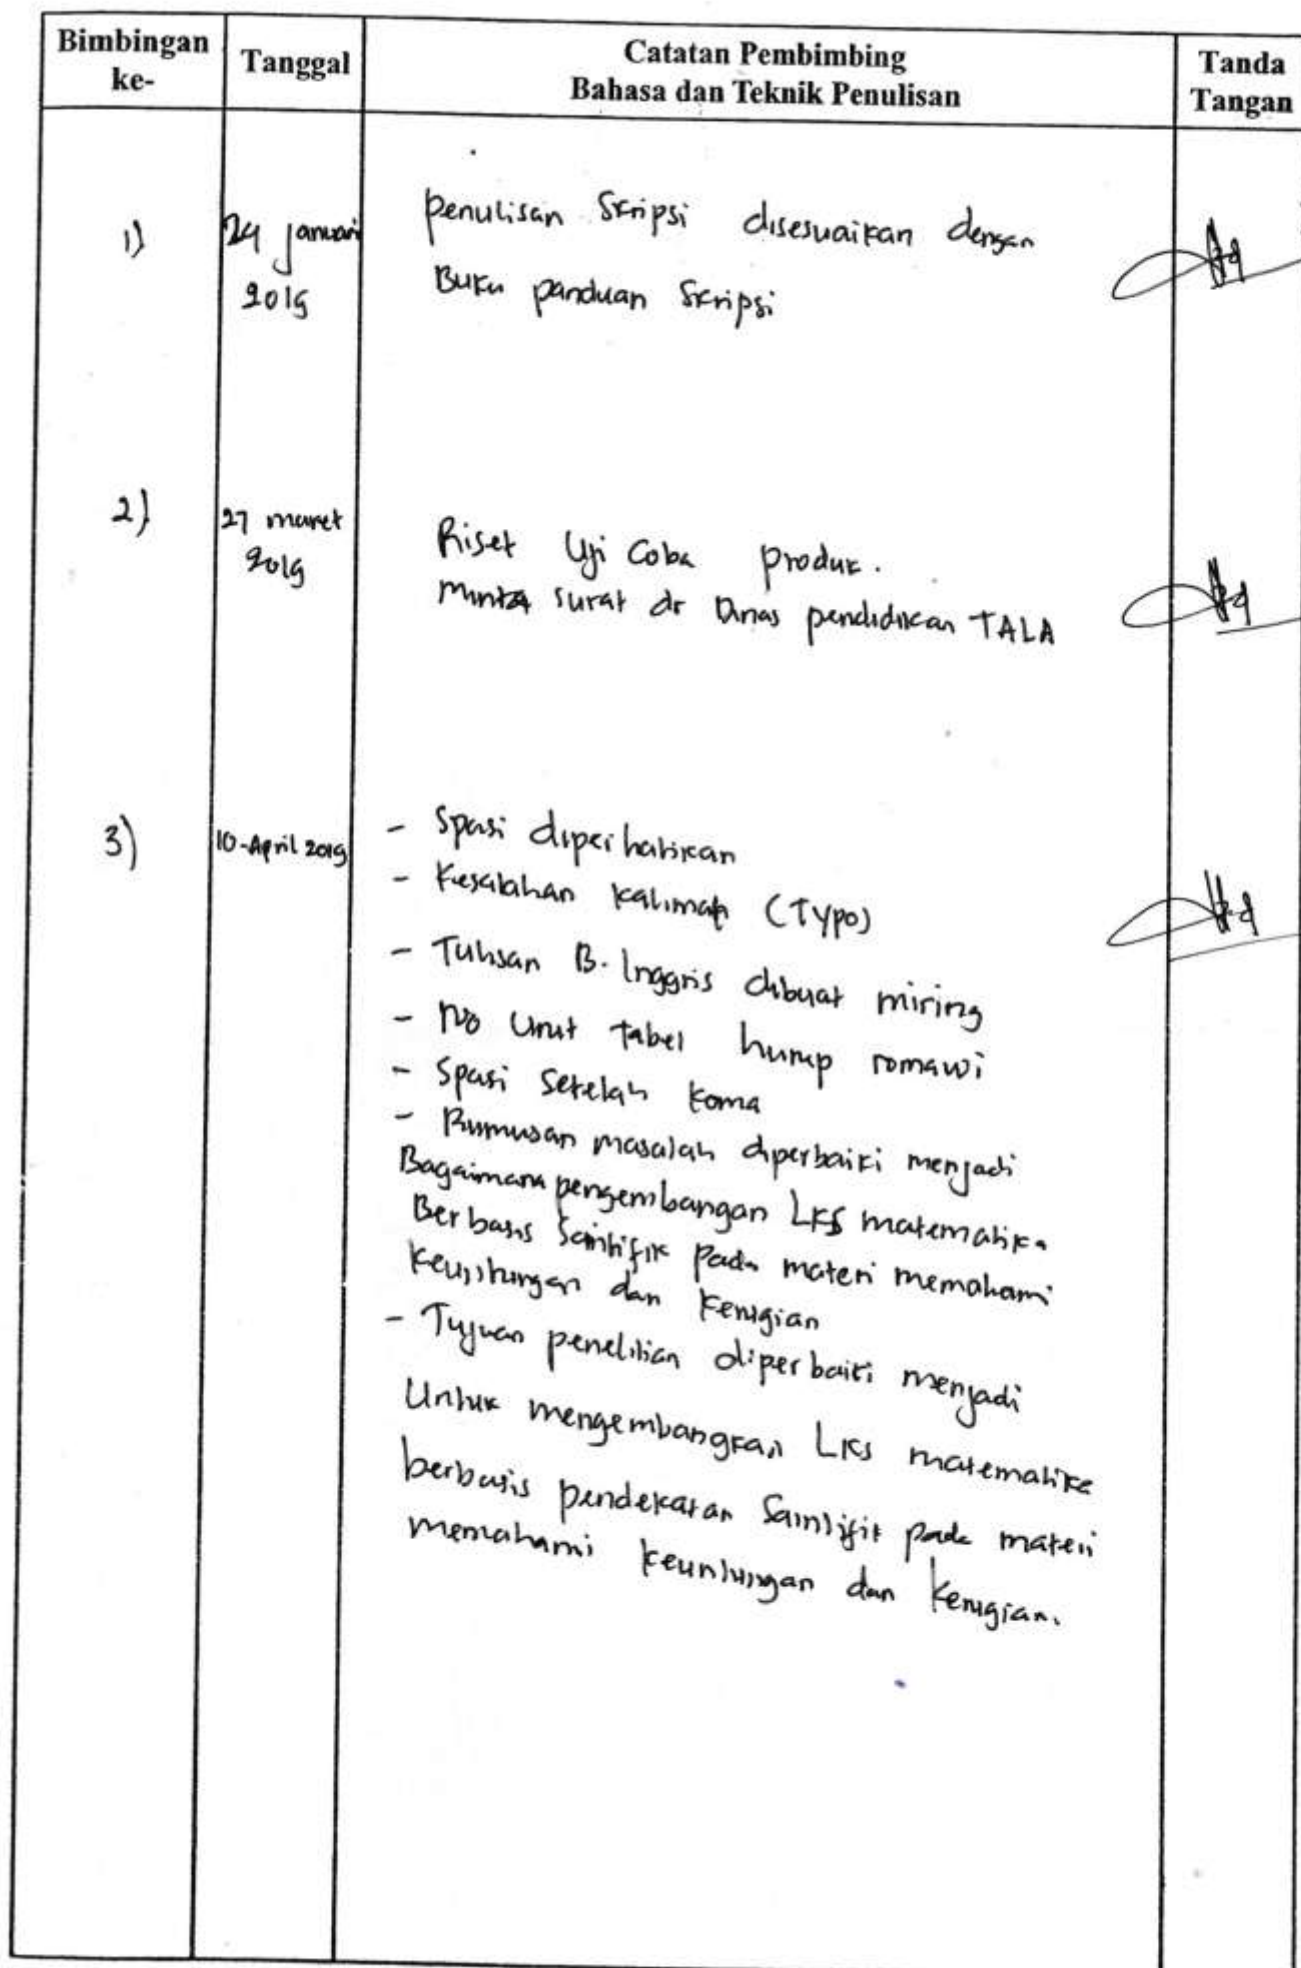 Bimbingan ke-
Tanggal
Catatan Pembimbing
Bahasa dan Teknik Penulisan
Tanda Tangan
1)
24 januari
2019
penulisan Skripsi disesuaikan dengan
Buku panduan Skripsi
2)
27 maret
2019
Riset Uji Coba produk.
Minta surat dr Dinas pendidikan TALA
3)
10-April 2019
- Spasi diperhatikan
- Kesalahan kalimat (Typo)
- Tulisan B. Inggris dibuat miring
- No Urut Tabel hurup romawi
- Spasi setelah koma
- Rumusan masalah diperbaiki menjadi
Bagaimana pengembangan LKS matematika
Berbasis Saintifik pada materi memahami
keuntungan dan kerugian
- Tujuan penelitian diperbaiki menjadi
Untuk mengembangkan LKS matematika
berbasis pendekatan Saintifik pada materi
memahami keuntungan dan kerugian.